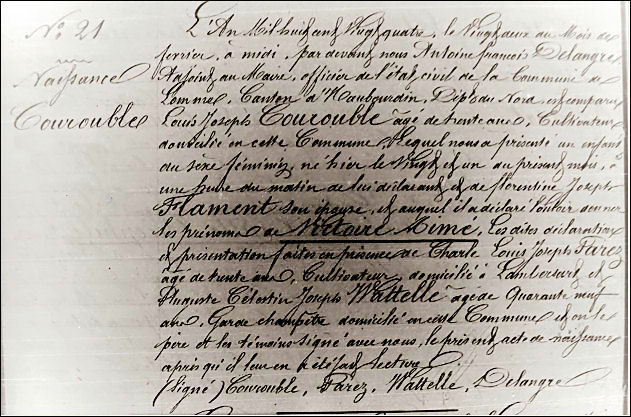 N.° 21
Naissance
Courouble
L'An Mil huit cent Vingt quatre, le Vingt deux au Mois de
fevrier, à midi, par devant nous Antoine françois Delangre
Adjoint au Maire, officier de l'état civil de la Commune de
Lomme, Canton d'Haubourdin, Dép.t du Nord, est comparu
Louis Joseph Courouble âgé de trente ans, Cultivateur
domicilié en cette Commune, Lequel nous a présenté un enfant
du sexe féminin, né hier le Vingt et un du présent mois, à
une heure du matin de lui déclarant, et de florentine Joseph
Flament son épouse, et auquel il a déclaré vouloir donner
les prénoms de Victoire Aimé, Les dites déclaration
et présentation faites en présence de Charle Louis Joseph Farez
âgé de trente ans, Cultivateur, domicilié à Lambersart, et
Auguste Célestin Joseph Wattelle âgé de Quarante neuf
ans, Garde champêtre domicilié en cette Commune et ont le
père et les témoins signé avec nous, le présent acte de naissance
après qu'il leur en a été fait lecture
(signé) Courouble, Farez, Wattelle, Delangre